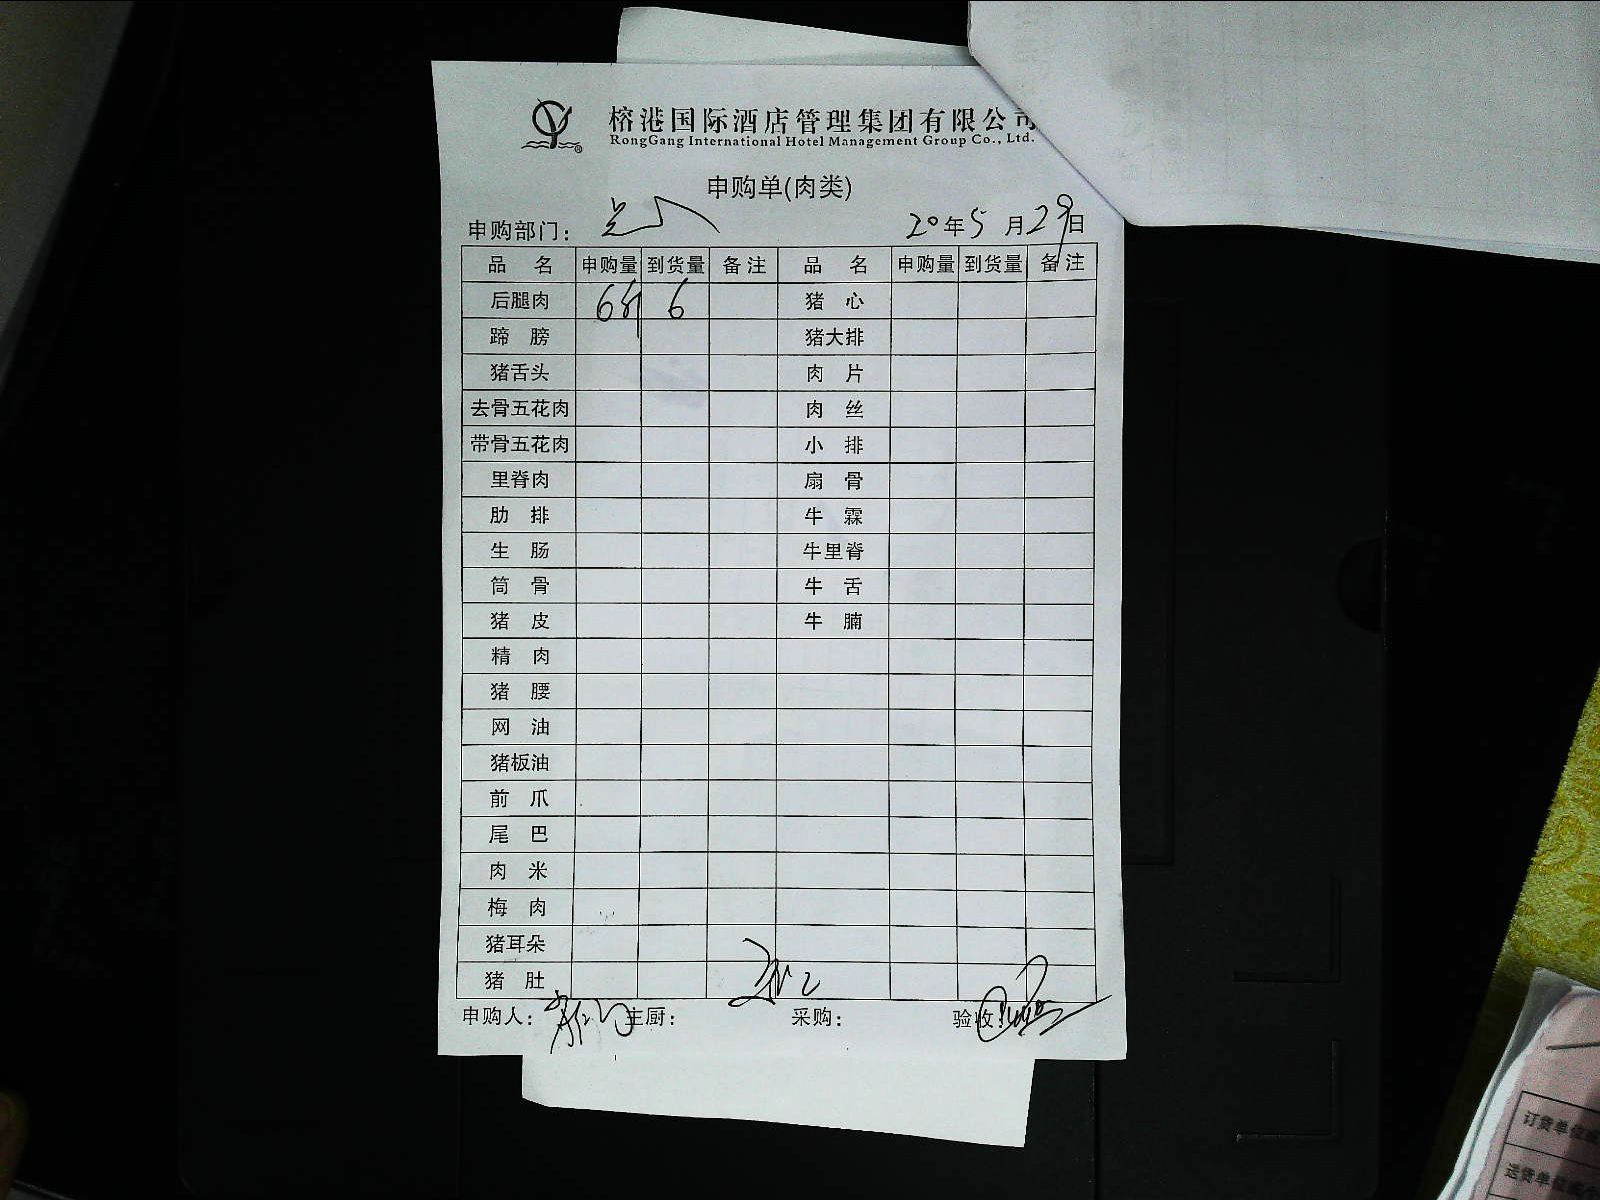 榕港国际酒店管理集团有限公司
RongGang International Hotel Management Group Co., Ltd.
申购单(肉类)
申购部门： 20年5月29日
品 名 申购量 到货量 备注 品 名 申购量 到货量 备注
后腿肉 6斤 6 猪 心
蹄 膀 猪大排
猪舌头 肉 片
去骨五花肉 肉 丝
带骨五花肉 小 排
里脊肉 扇 骨
肋 排 牛 霖
生 肠 牛里脊
筒 骨 牛 舌
猪 皮 牛 腩
精 肉
猪 腰
网 油
猪板油
前 爪
尾 巴
肉 米
梅 肉
猪耳朵
猪 肚
申购人： 主厨： 采购： 验收：
订货单位
送货单位